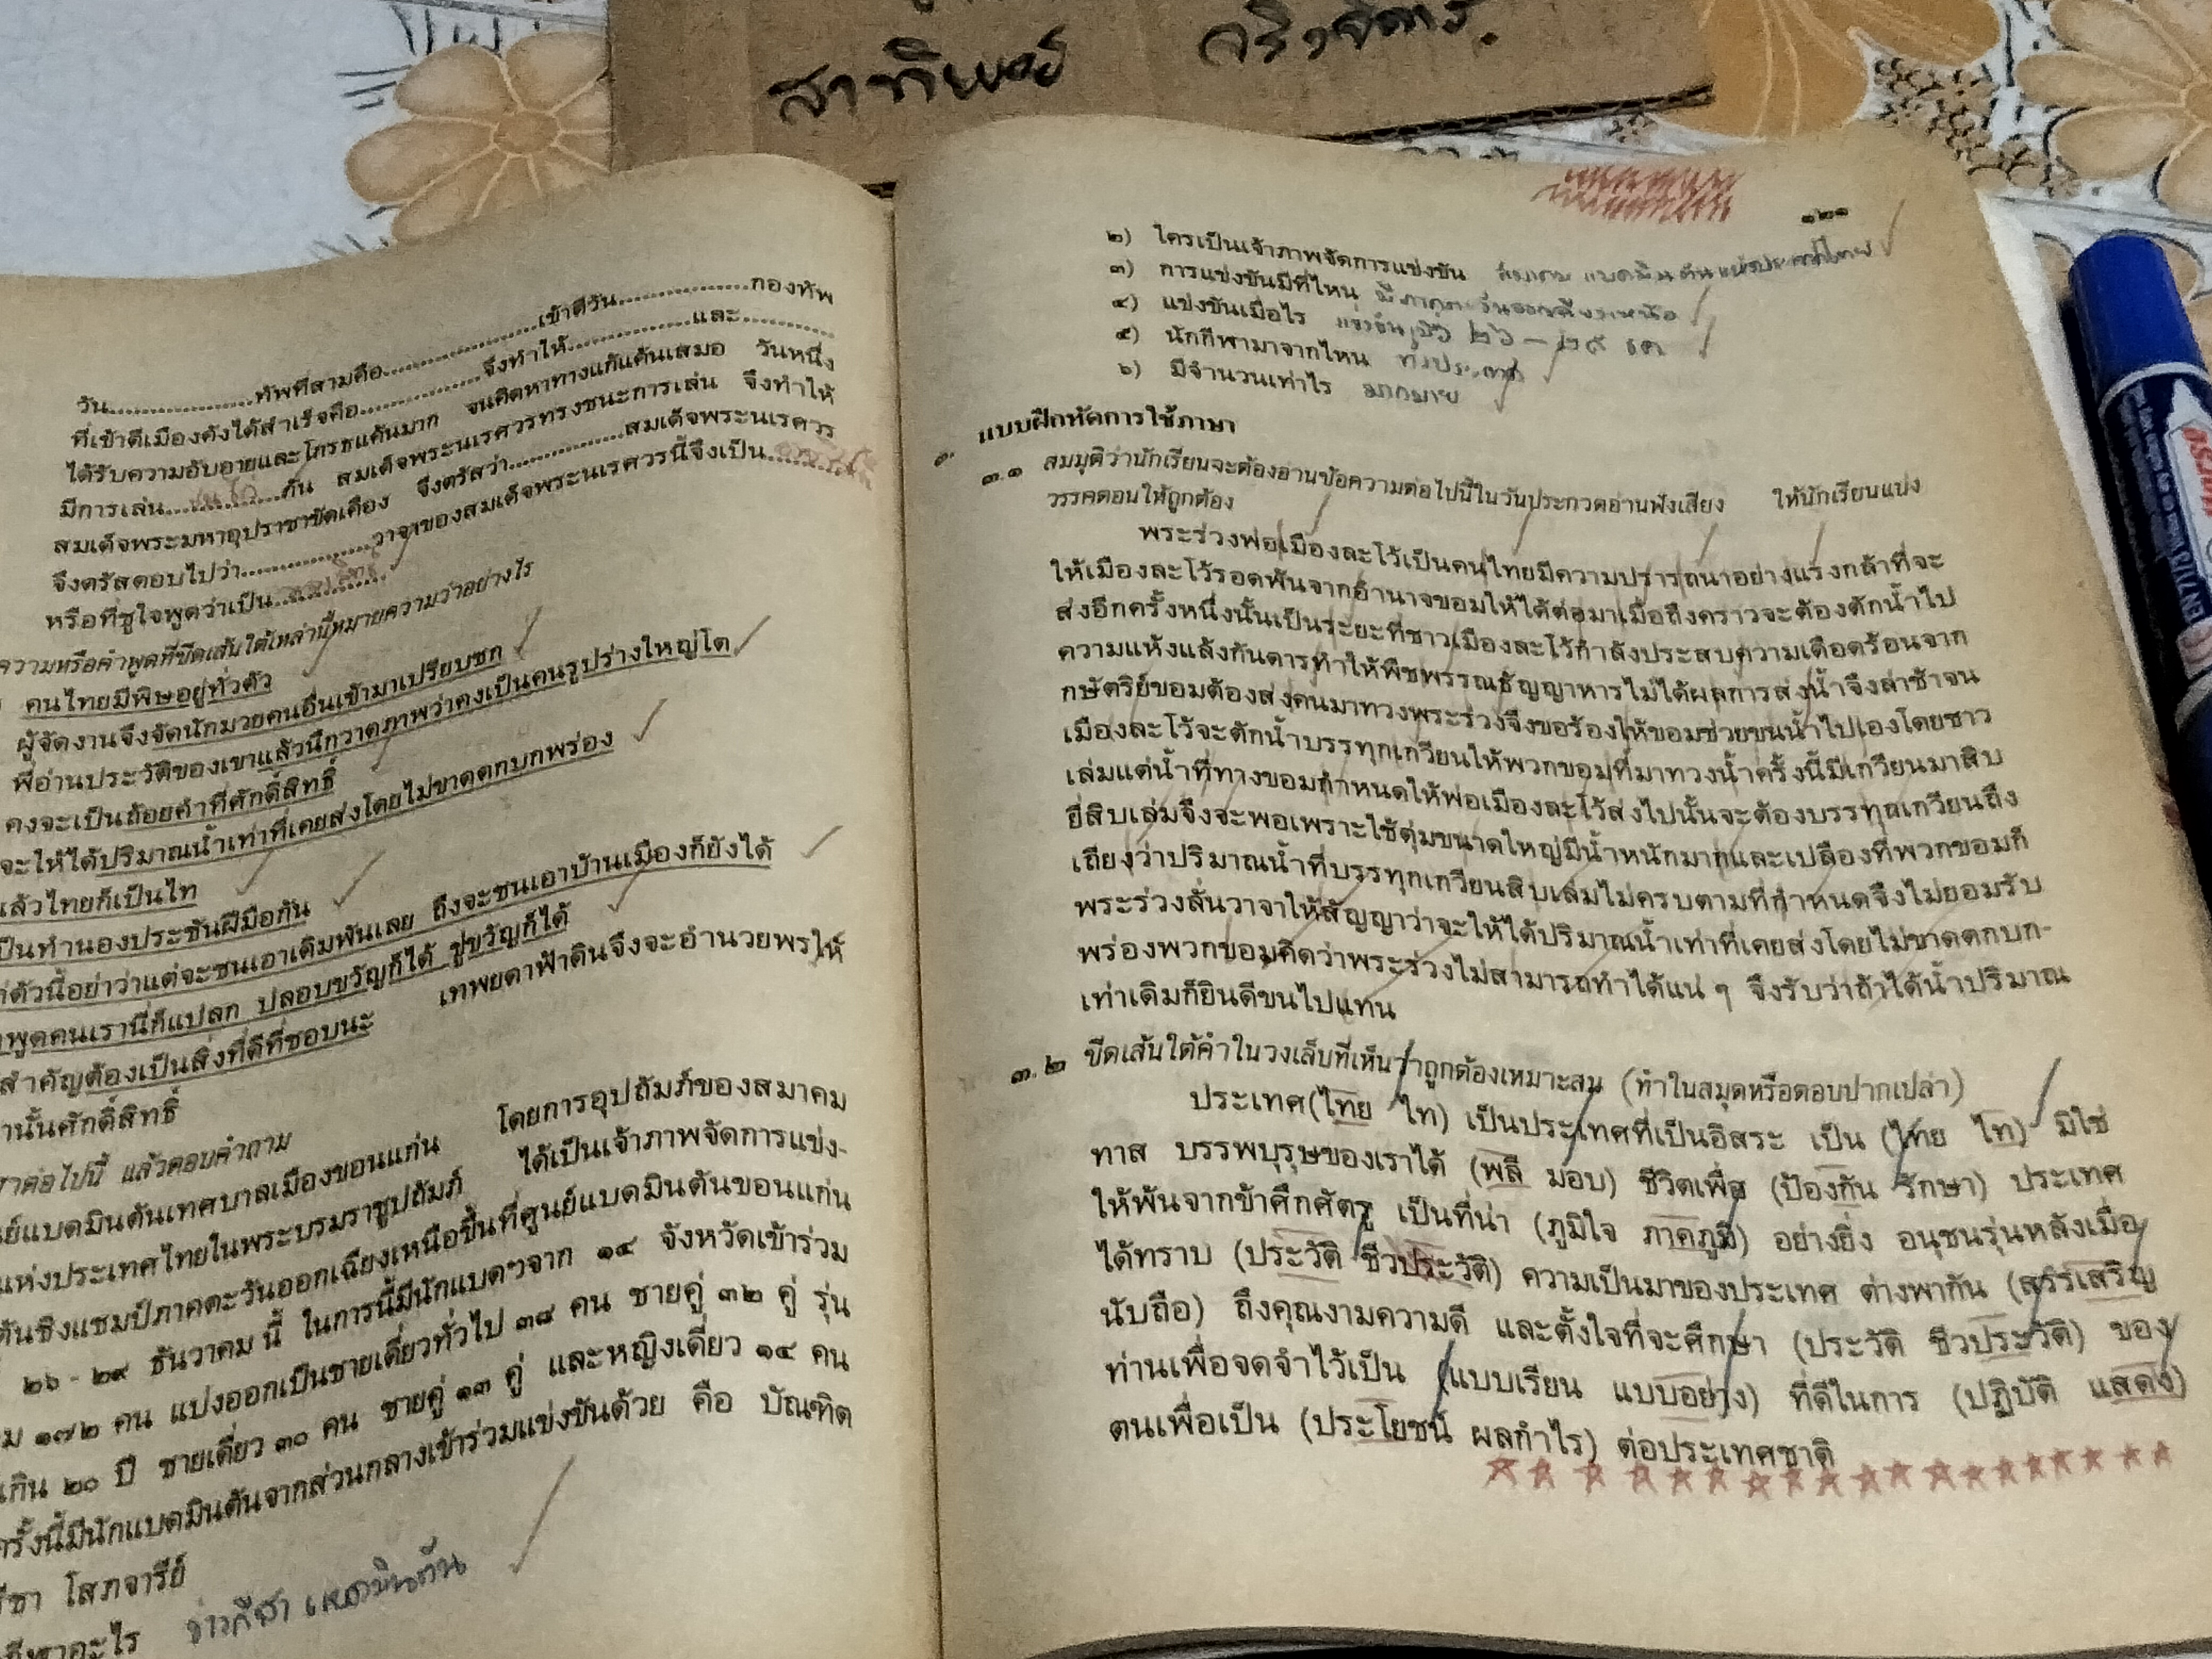 วัน....................ทัพที่สามคือ....................เข้าตีวัน................กองทัพ
ที่เข้าตีเมืองคังได้สำเร็จคือ................จึงทำให้................และ............
ได้รับความอับอายและโกรธแค้นมาก จนคิดหาทางแก้แค้นเสมอ วันหนึ่ง
มีการเล่น................กัน สมเด็จพระนเรศวรทรงชนะการเล่น จึงทำให้
สมเด็จพระมหาอุปราชาขัดเคือง จึงตรัสว่า................สมเด็จพระนเรศวร
จึงตรัสตอบไปว่า................วาจาของสมเด็จพระนเรศวรนี้จึงเป็น............
หรือที่ชูใจพูดว่าเป็น............
ความหรือคำพูดที่ขีดเส้นใต้เหล่านี้หมายความว่าอย่างไร
คนไทยมีพิษอยู่ทั่วตัว
ผู้จัดงานจึงจัดนักมวยคนอื่นเข้ามาเปรียบชก
พี่อ่านประวัติของเขาแล้วนึกวาดภาพว่าคงเป็นคนรูปร่างใหญ่โต
คงจะเป็นถ้อยคำที่ศักดิ์สิทธิ์
จะให้ได้ปริมาณน้ำเท่าที่เคยส่งโดยไม่ขาดตกบกพร่อง
แล้วไทยก็เป็นไท
เป็นทำนองประชันฝีมือกัน
ตัวนี้อย่าว่าแต่จะชนเอาเดิมพันเลย ถึงจะชนเอาบ้านเมืองก็ยังได้
พูดคนเรานี่ก็แปลก ปลอบขวัญก็ได้ ขู่ขวัญก็ได้
สำคัญต้องเป็นสิ่งที่ดีที่ชอบนะ เทพยดาฟ้าดินจึงจะอำนวยพรให้
นั้นศักดิ์สิทธิ์
ต่อไปนี้ แล้วตอบคำถาม
แบดมินตันเทศบาลเมืองขอนแก่น โดยการอุปถัมภ์ของสมาคม
แห่งประเทศไทยในพระบรมราชูปถัมภ์ ได้เป็นเจ้าภาพจัดการแข่ง-
ตันชิงแชมป์ภาคตะวันออกเฉียงเหนือขึ้นที่ศูนย์แบดมินตันขอนแก่น
๒๖ - ๒๙ ธันวาคม นี้ ในการนี้มีนักแบดฯจาก ๑๔ จังหวัดเข้าร่วม
๑๗๒ คน แบ่งออกเป็นชายเดี่ยวทั่วไป ๓๘ คน ชายคู่ ๓๒ คู่ รุ่น
เกิน ๒๐ ปี ชายเดี่ยว ๓๐ คน ชายคู่ ๑๓ คู่ และหญิงเดี่ยว ๑๔ คน
ครั้งนี้มีนักแบดมินตันจากส่วนกลางเข้าร่วมแข่งขันด้วย คือ บัณฑิต
โสภจารีย์
อะไร ข่าวกีฬาแบดมินตัน
๑๒๑
๒) ใครเป็นเจ้าภาพจัดการแข่งขัน สมาคม แบดมินตันแห่งประเทศไทย
๓) การแข่งขันมีที่ไหน มีภาคตะวันออกเฉียงเหนือ
๔) แข่งขันเมื่อไร ๒๖ - ๒๙ ธค
๕) นักกีฬามาจากไหน ทั่วประเทศ
๖) มีจำนวนเท่าไร มากมาย
แบบฝึกหัดการใช้ภาษา
๓.๑ สมมุติว่านักเรียนจะต้องอ่านข้อความต่อไปนี้ในวันประกวดอ่านฟังเสียง ให้นักเรียนแบ่ง
วรรคตอนให้ถูกต้อง
พระร่วงพ่อเมืองละโว้เป็นคนไทยมีความปรารถนาอย่างแรงกล้าที่จะ
ให้เมืองละโว้รอดพ้นจากอำนาจขอมให้ได้ต่อมาเมื่อถึงคราวจะต้องตักน้ำไป
ส่งอีกครั้งหนึ่งนั้นเป็นระยะที่ชาวเมืองละโว้กำลังประสบความเดือดร้อนจาก
ความแห้งแล้งกันดารทำให้พืชพรรณธัญญาหารไม่ได้ผลการส่งน้ำจึงล่าช้าจน
กษัตริย์ขอมต้องส่งคนมาทวงพระร่วงจึงขอร้องให้ขอมช่วยขนน้ำไปเองโดยชาว
เมืองละโว้จะตักน้ำบรรทุกเกวียนให้พวกขอมที่มาทวงน้ำครั้งนี้มีเกวียนมาสิบ
เล่มแต่น้ำที่ทางขอมกำหนดให้พ่อเมืองละโว้ส่งไปนั้นจะต้องบรรทุกเกวียนถึง
ยี่สิบเล่มจึงจะพอเพราะใช้ตุ่มขนาดใหญ่มีน้ำหนักมากและเปลืองที่พวกขอมก็
เถียงว่าปริมาณน้ำที่บรรทุกเกวียนสิบเล่มไม่ครบตามที่กำหนดจึงไม่ยอมรับ
พระร่วงลั่นวาจาให้สัญญาว่าจะให้ได้ปริมาณน้ำเท่าที่เคยส่งโดยไม่ขาดตกบก-
พร่องพวกขอมคิดว่าพระร่วงไม่สามารถทำได้แน่ ๆ จึงรับว่าถ้าได้น้ำปริมาณ
เท่าเดิมก็ยินดีขนไปแทน
๓.๒ ขีดเส้นใต้คำในวงเล็บที่เห็นว่าถูกต้องเหมาะสม (ทำในสมุดหรือตอบปากเปล่า)
ประเทศ(ไทย ไท) เป็นประเทศที่เป็นอิสระ เป็น (ไทย ไท) มิใช่
ทาส บรรพบุรุษของเราได้ (พลี มอบ) ชีวิตเพื่อ (ป้องกัน รักษา) ประเทศ
ให้พ้นจากข้าศึกศัตรู เป็นที่น่า (ภูมิใจ ภาคภูมิ) อย่างยิ่ง อนุชนรุ่นหลังเมื่อ
ได้ทราบ (ประวัติ ชีวประวัติ) ความเป็นมาของประเทศ ต่างพากัน (สรรเสริญ
นับถือ) ถึงคุณงามความดี และตั้งใจที่จะศึกษา (ประวัติ ชีวประวัติ) ของ
ท่านเพื่อจดจำไว้เป็น (แบบเรียน แบบอย่าง) ที่ดีในการ (ปฏิบัติ แสดง)
ตนเพื่อเป็น (ประโยชน์ ผลกำไร) ต่อประเทศชาติ